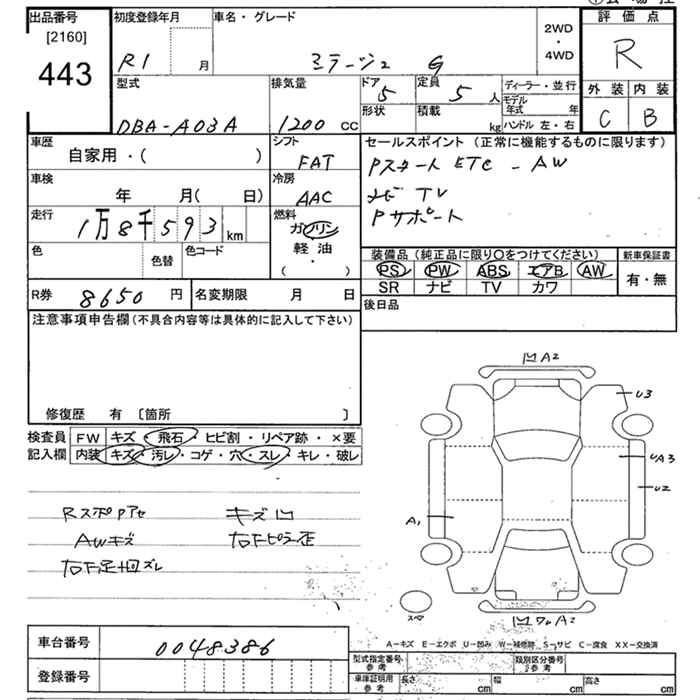 出品番号
[2160]
443
初度登録年月
R1 月
車名・グレード
ミラージュ G
2WD
・
4WD
評価点
R
外装 内装
C B
型式
DBA-A03A
排気量
1200 cc
ドア
5
定員
5 人
形状
積載
kg
ディーラー・並行
モデル年式 年
ハンドル 左・右
車歴
自家用・( )
シフト
FAT
セールスポイント (正常に機能するものに限ります)
Pスタート ETC - AW
ナビ TV
Pサポート
車検
年 月( 日)
冷房
AAC
走行
1万8千593 km
燃料
ガソリン
軽油
( ・ )
色
色替
色コード
装備品 (純正品に限り○をつけてください)
PS PW ABS エアB AW
SR ナビ TV カワ
新車保証書
有・無
R券 8650 円
名変期限 月 日
後日品
注意事項申告欄 (不具合内容等は具体的に記入して下さい)
修復歴 有 〔箇所 〕
検査員
記入欄
FW キズ・飛石・ヒビ割・リペア跡・×要
内装 キズ・汚レ・コゲ・穴・スレ・キレ・破レ
RスポPアセ キズ凹
AWキズ 右Fピラー歪
右F足回ズレ
凹A2
U3
UA3
U2
A1
スペア
A2
A-キズ E-エクボ U-凹み W-補修跡 S-サビ C-腐食 XX-交換済
車台番号
0048386
登録番号
型式指定番号
参考
類別区分番号
参考
車庫証明用
参考
長さ cm
幅 cm
高さ cm